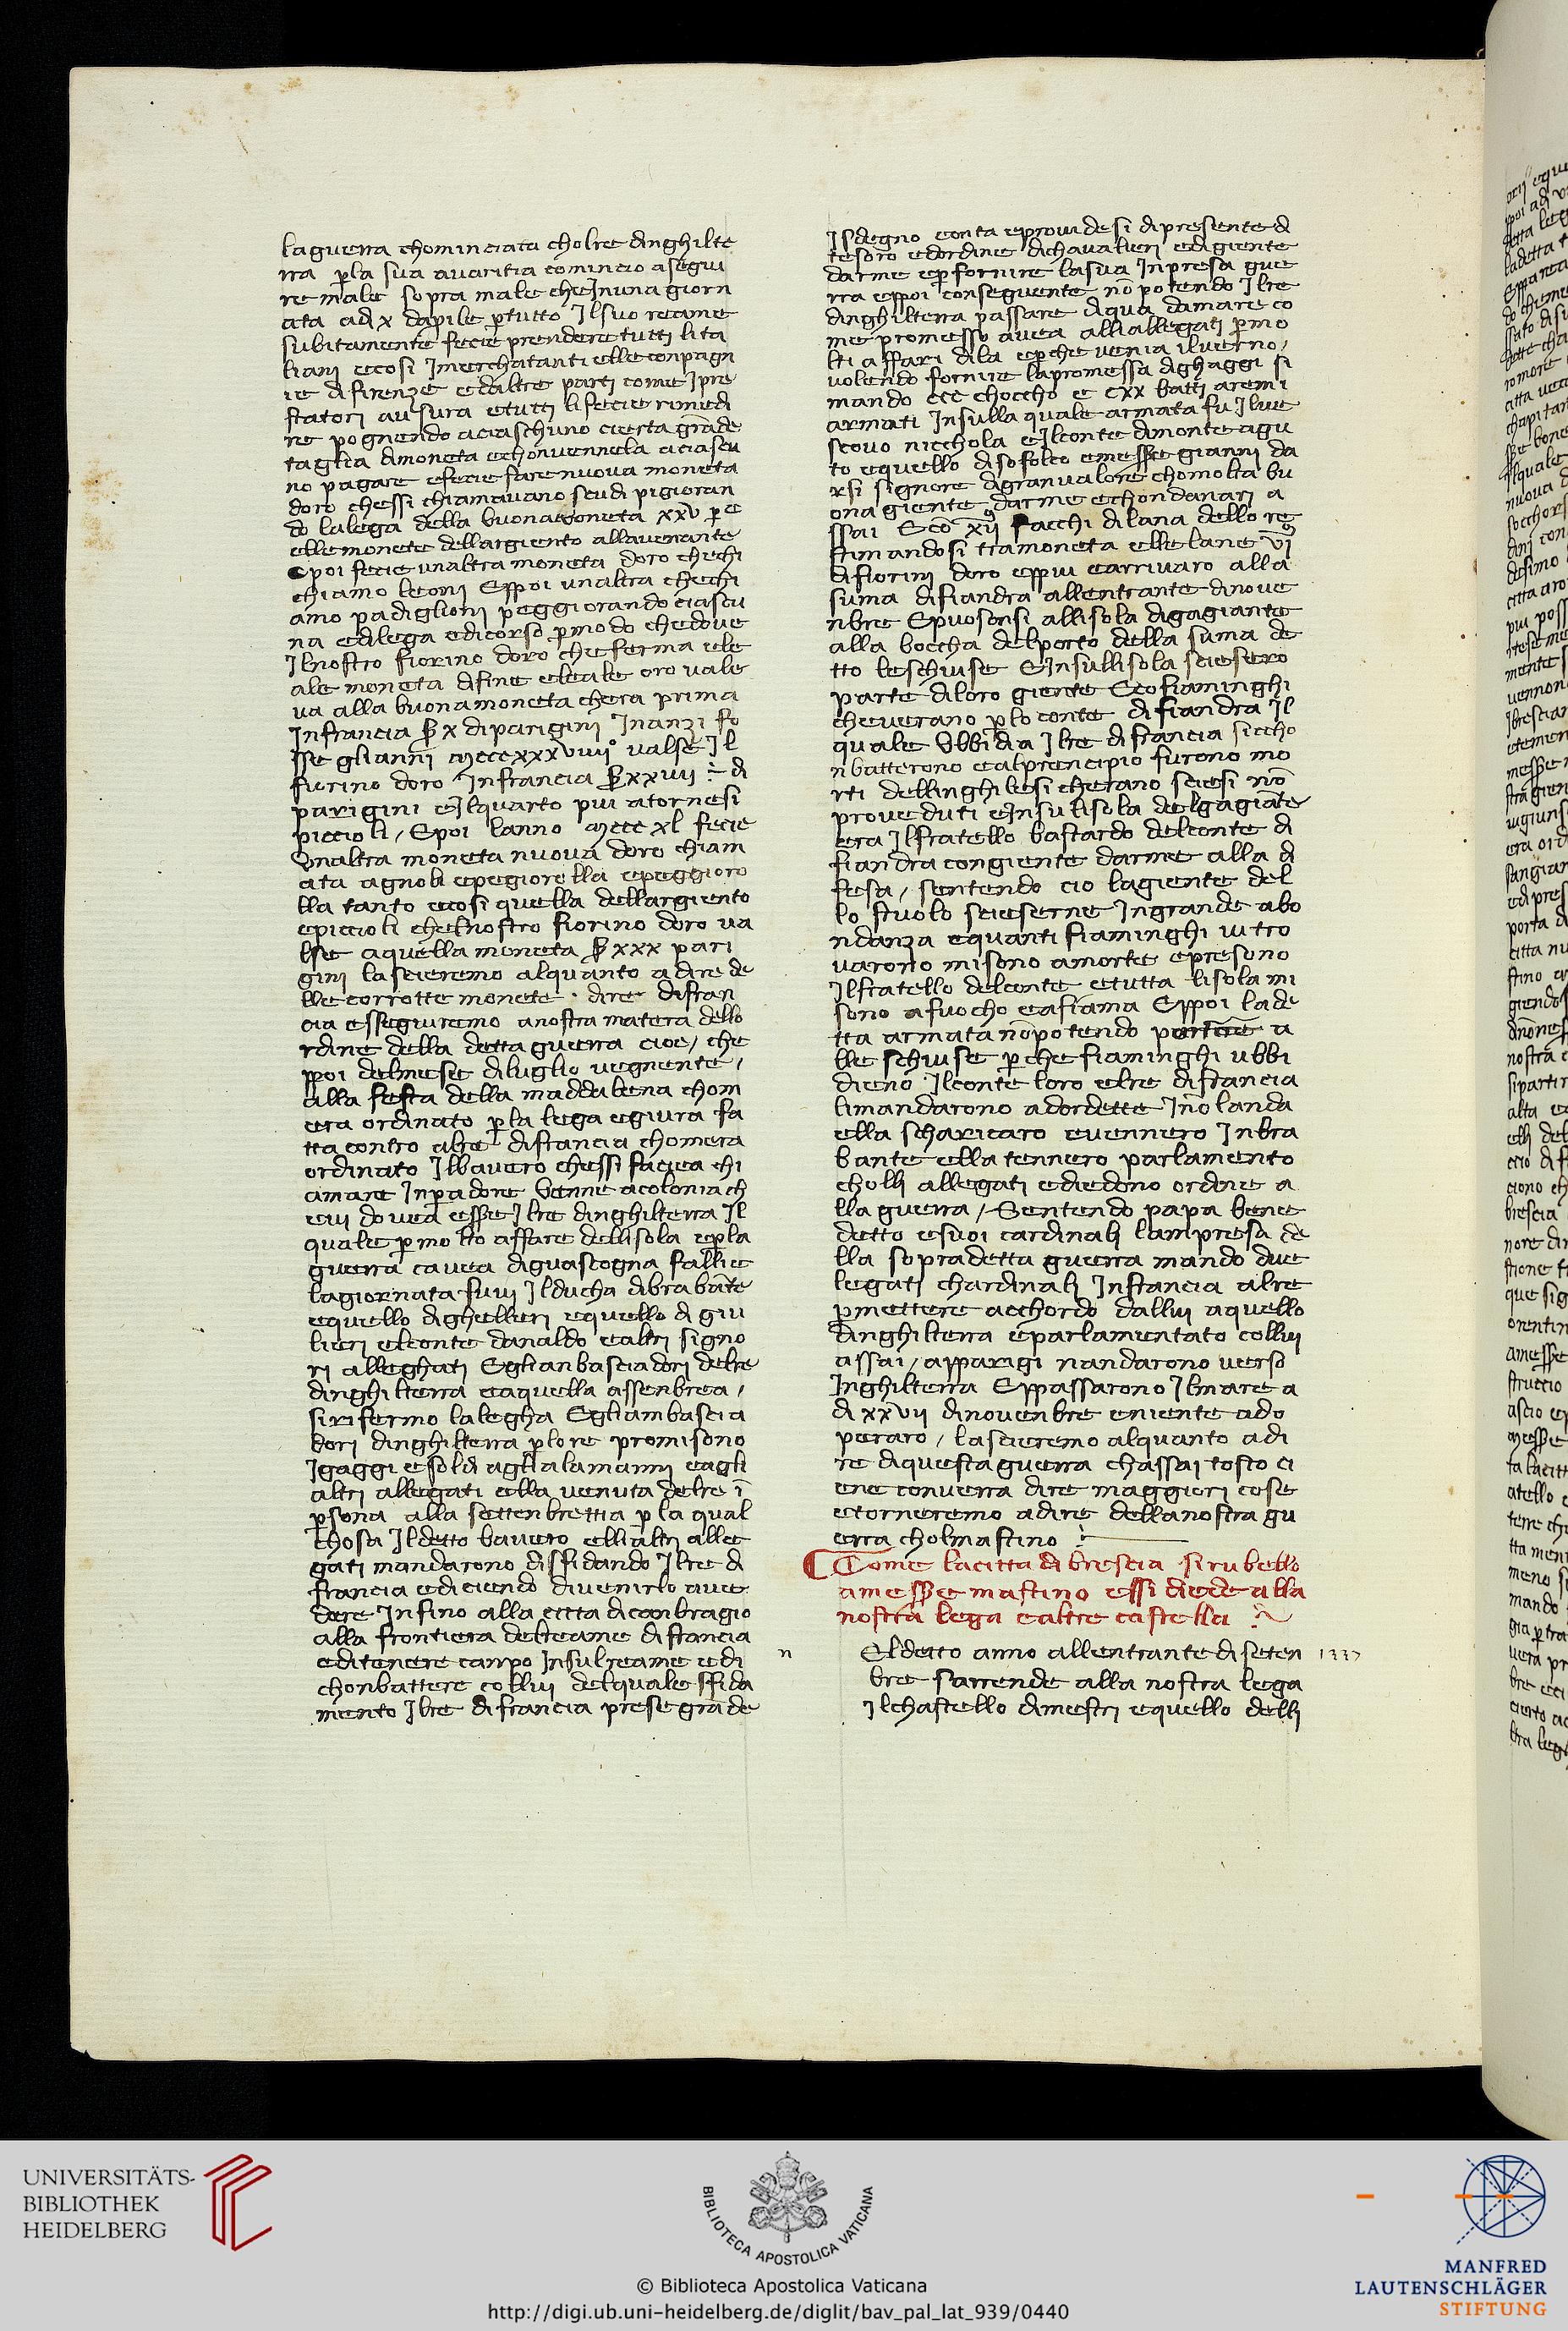 la guerra chominciata cholre dinghilte
rra p̱la sua avaritia comincio asegui
re male sopra male cheJnuna giorn
ata ad x daprile p̱tutto Jlsuo reame
subitamente fecie prendere tutti lita
liani ecosi Jmerchatanti elle conpagn
ie difirenze edaltre parti come Jpre
statori au sura etutti li fecie rimedi
re pognendo aciaschuno cierta grāde
taglia dimoneta echonvennela aciascu
no pagare efecie fare nuova moneta
doro chessi chiamavano scudi pigioran
do lalega della buona moneta xxv p̱ c
elle monete dellargiento allavenante
epoi fecie unaltra moneta doro chechi
chiamo leoni Eppoi unaltra chechi
amo padiglioni peggiorando ciascu
na edilega edicorso p̱modo chedove
Jlnostro fiorino doro che ferma ele
ale moneta difine eleale oro vale
va alla buona moneta chera prima
Jnfrancia ß x diparigini Jnanzi fo
sse glianni mcccxxxviiii° valse Jl
fiorino doro Jnfrancia ß xxiiii ÷ di
parigini eJlquarto piu atornesi
piccioli / Epoi lanno mccc xl fecie
Unaltra moneta nuova doro chiam
ata agnoli epegiorella epeggioro
lla tanto ecosi quella dellargiento
epiccioli chelnostro fiorino doro va
lse aquella moneta ß xxx pari
gini lascieremo alquanto adire de
lle corrotte monete · dire difran
cia esseguiremo anostra matera dello
rdine della detta guerra cioe / che
ppoi delmese diluglio vegnente /
alla festa della maddalena chom
era ordinato p̱la lega egiura fa
tta contro alre difrancia chomera
ordinato Jlbavero chessi faciea chi
amare Jnp̱adore Venne acolonia ch
evi dovea esse Jlre dinghilterra Jl
quale p̱molto affare dellisola ep̱la
guerra cavea diguascogna fallie
lagiornata fuvi Jlducha dibrabāte
equello dighelleri equello di giu
lieri elconte danaldo ealtri signo
ri alleghati Eglianbasciadori delre
dinghilterra eaquella assenbrea /
sirifermo lalegha Egliambascia
dori dinghilterra p̱lore promisono
Jgaggi esoldi aglialamanni eagli
altri allegati ella venuta delre ī
p̱sona alla settenbrettia p̱ la qual
chosa Jldetto bavero elli altri alle
gati mandarono disfidando Jlre di
francia ediciendo divenirlo ave
dere Jnfino alla citta dicanbragio
alla frontiera delreame difrancia
editenere canpo Jnsulreame edi
chonbattere collui delquale sfida
mento Jlre difrancia prese grāde
Jsdegno eonta eprovidesi dipresente di
tesoro edordine dichavalieri edigiente
darme ep̱fornire lasua Jnpresa gue
rra eppoi conseguente nō potendo Jlre
dinghilterra passare diqua damare co
me promesso avea alliallegati p̱mo
lti affari dila ep̱che venia ilverno /
volendo fornire lapromessa dighaggi si
mando ccc choccho e cxx batti aremi
armati Jnsulla quale armata fu Jlve
scovo nicchola eJlconte dimonteagu
to equello disofolco emesse gianni da
rsi signore digranvalore chomolta bu
ona giente darme echondanari a
ssai Eco xii sacchi dilana dello re
stimandosi tramoneta ellelane vi
difiorini doro eppiu earrivaro alla
suma difiandra allentrante dinove
nbre Epuosonsi allisola digagiante
alla boccha delporto della suma de
tto leschiuse Einsullisola sciesero
parte diloro giente Ecofiaminghi
cheverano p̱lo conte difiandra Jl
quale Ubbidia Jlre difrancia siccho
nbatterono ealprencipio furono mo
rti dellinghilesi cherano sciesi nō
proveduti eInsulisola delgagiāte
era Jlfratello bastardo delconte di
fiandra congiente darme alla di
fesa / sentendo cio lagiente del
lo stuolo scieserne Jngrande abo
ndanza equanti fiaminghi vitro
varono misono amorte epresono
Jlfratello delconte etutta lisola mi
sono afuocho eafiama Eppoi lade
tta armata nōpotendo partire a
lle schiuse p̱che fiaminghi ubbi
dieno Jlconte loro elre difrancia
limandarono adordette Jnolanda
ella scharicaro evennero Jnbra
bante ella tennero parlamento
cholli allegati ediedono ordine a
lla guerra / Sentendo papa bene
detto esuoi cardinali lampresa de
lla sopradetta guerra mando due
legati chardinali Jnfrancia alre
p̱mettere acchordo dallui aquello
dinghilterra eparlamentato collui
assai / apparigi nandarono verso
Jnghilterra Eppassarono Jlmare a
di xxvii dinovenbre eniente ado
peraro / lascieremo alquanto adi
re diquesta guerra chassai tosto ci
ene converra dire maggiori cose
etorneremo adire della nostra gu
erra cholmastino
Come lacitta di brescia si rubello
amesse mastino essi diede alla
nostra lega ealtre castella
n Eldetto anno allentrante diseten 1337
bre sarrende alla nostra lega
Jlchastello dimestri equello delli
UNIVERSITÄTS-
BIBLIOTHEK
HEIDELBERG
BIBLIOTECA APOSTOLICA VATICANA
MANFRED
LAUTENSCHLÄGER
STIFTUNG
© Biblioteca Apostolica Vaticana
http://digi.ub.uni-heidelberg.de/diglit/bav_pal_lat_939/0440